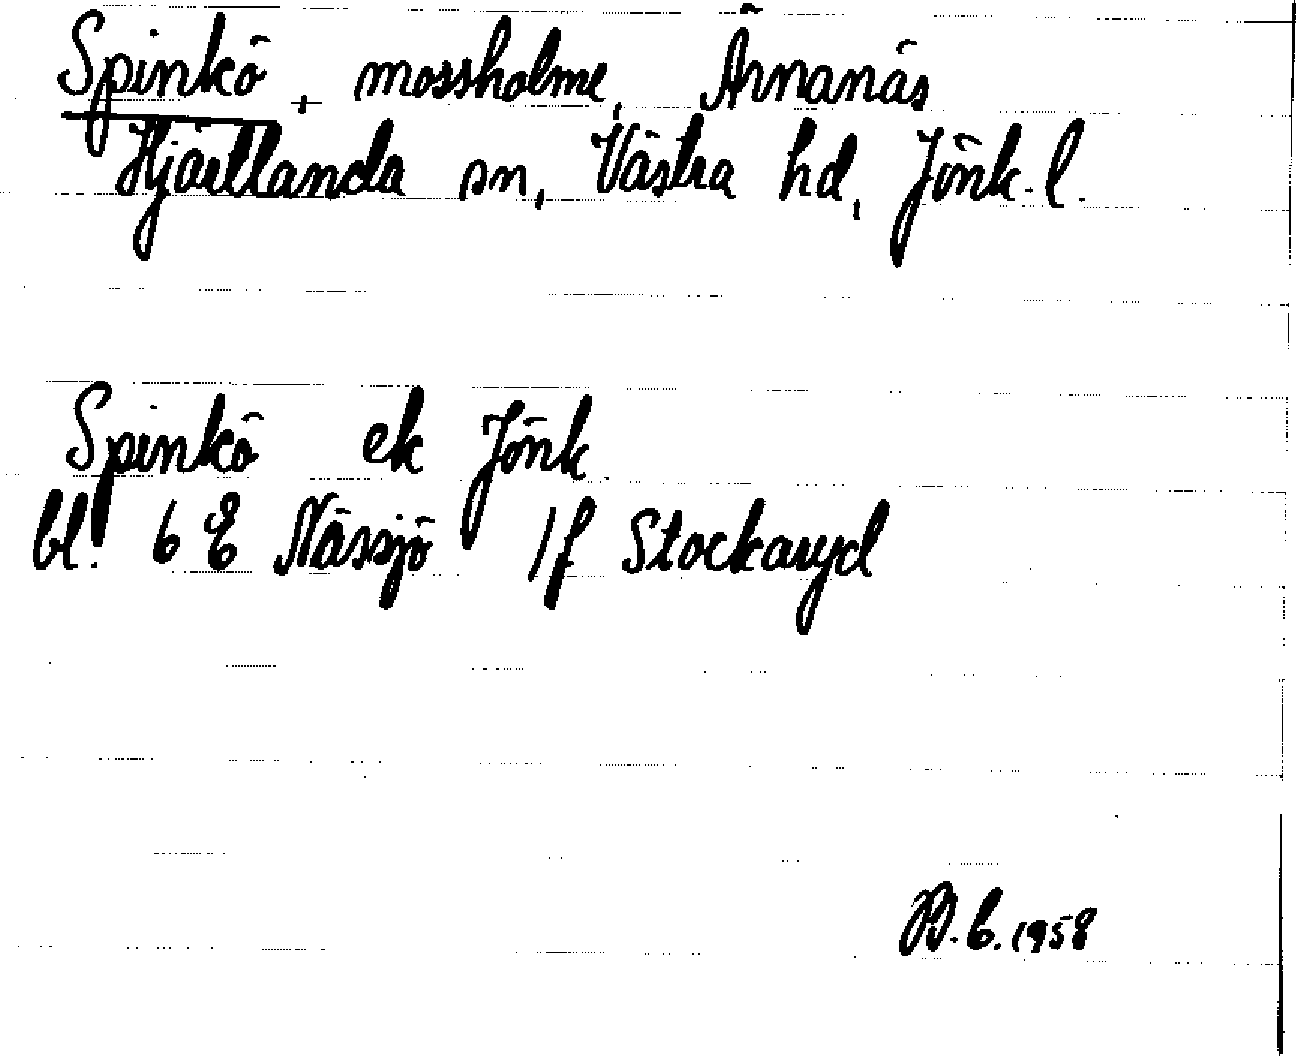 Spinkö, mossholme, Ärnanäs
Hjärtlanda sn, Västra hd, Jönk. l.
Spinkö ek Jönk
bl. 6 E Nässjö 1f Stockaryd
B.E. 1958